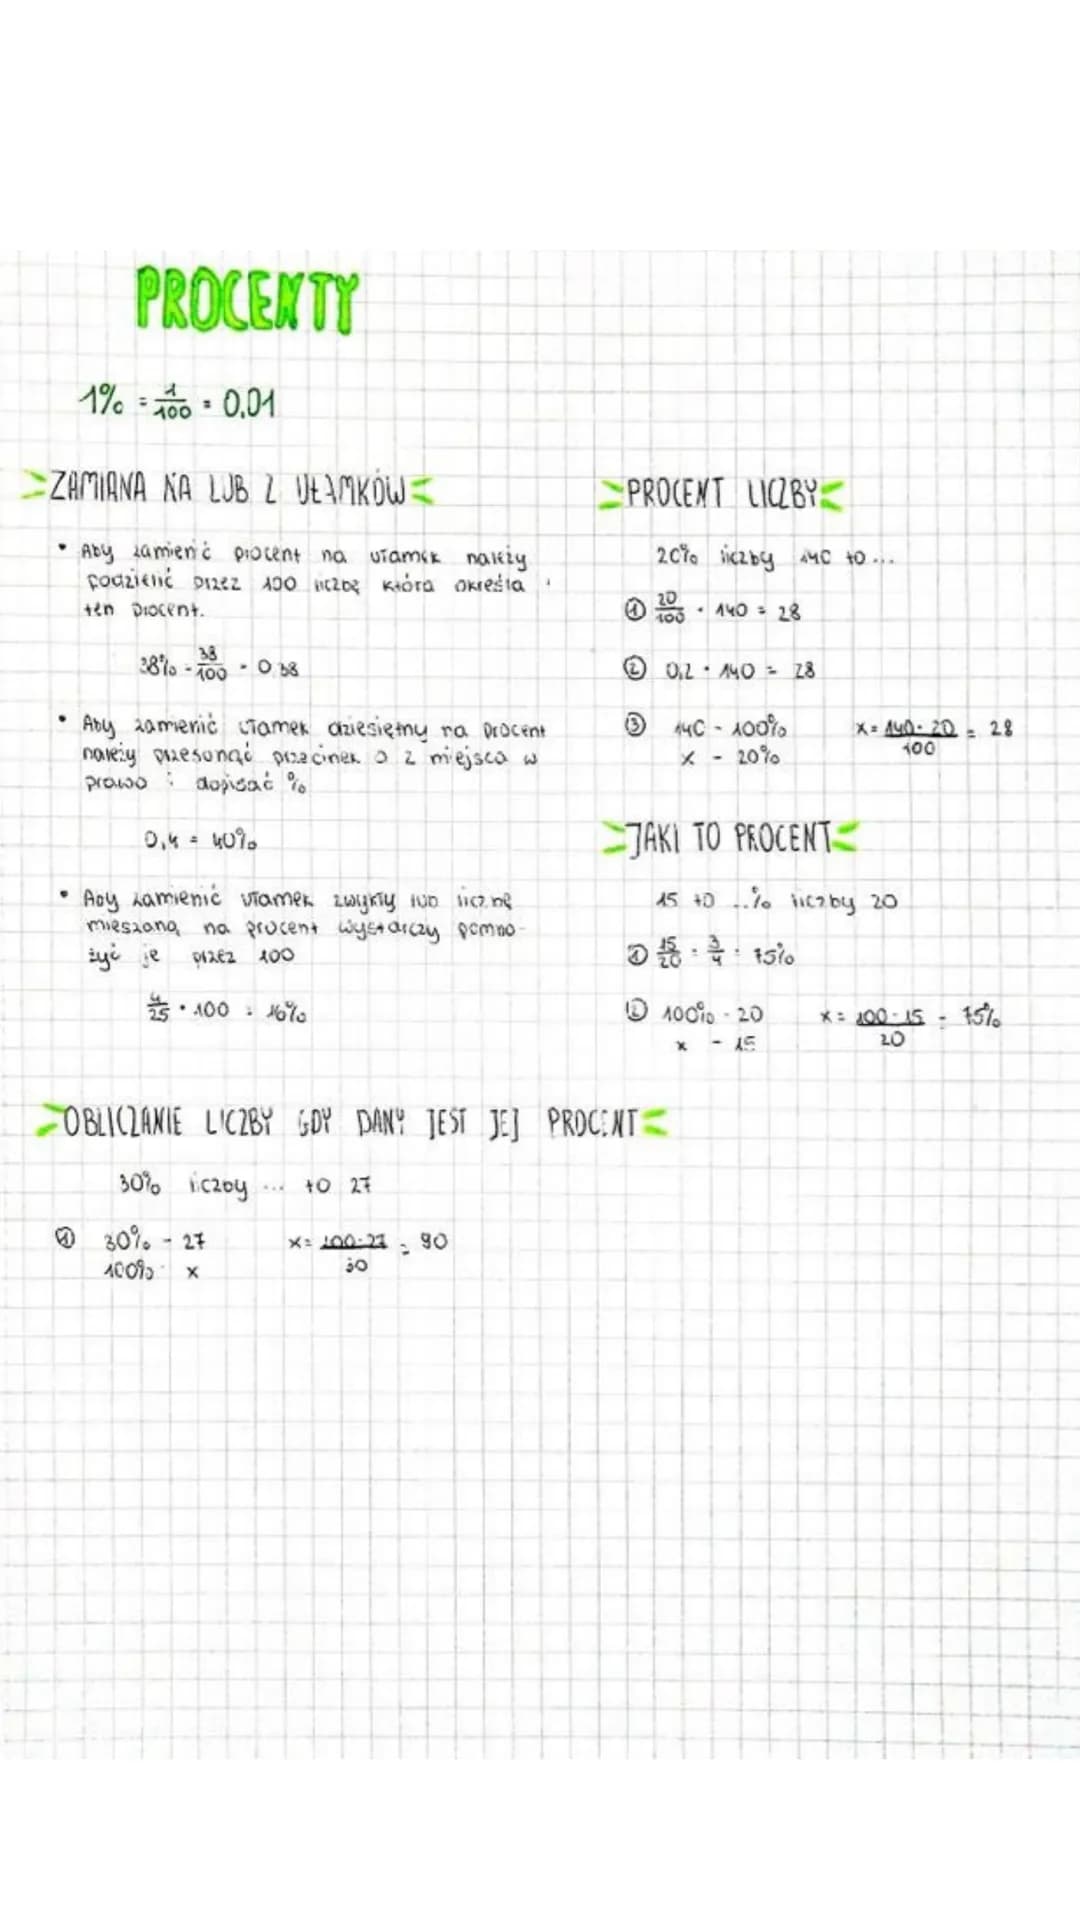 PROCENTY
1% = 1/100 = 0,01
ZAMIANA NA LUB Z UŁAMKÓW
• Aby zamienić procent na ułamek należy
podzielić przez 100 liczbę która określa
ten procent.
38% = 38/100 = 0,38
• Aby zamienić ułamek dziesiętny na procent
należy przesunąć przecinek o 2 miejsca w
prawo i dopisać %
0,4 = 40%
• Aby zamienić ułamek zwykły lub liczbę
mieszaną na procent wystarczy pomno-
żyć je przez 100
4/25 · 100 = 16%
PROCENT LICZBY
20% liczby 140 to ...
① 20/100 · 140 = 28
② 0,2 · 140 = 28
③ 140 - 100% x = 140 · 20/100 = 28
x - 20%
JAKI TO PROCENT
15 to ..% liczby 20
① 15/20 = 3/4 = 75%
② 100% - 20 x = 100 · 15/20 = 75%
x - 15
OBLICZANIE LICZBY GDY DANY JEST JEJ PROCENT
30% liczby ... to 27
① 30% - 27 x = 100 · 27/30 = 90
100% - x